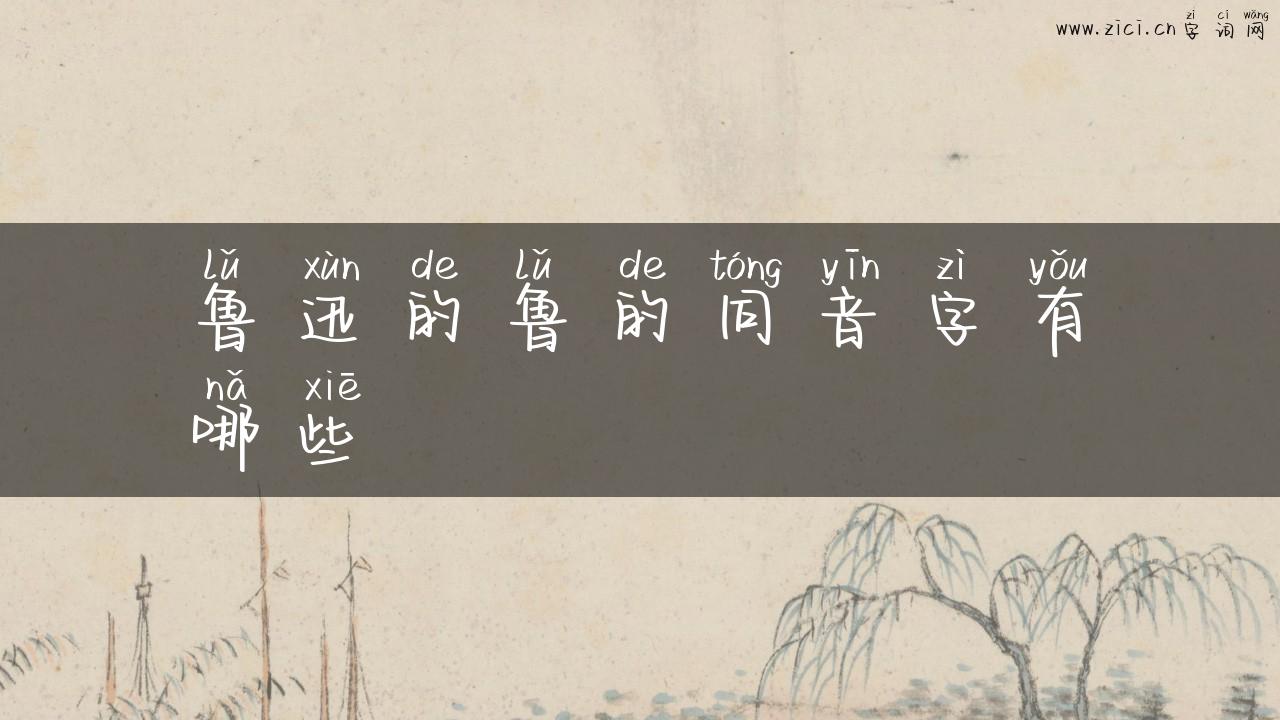 zì cí wǎng
www.zici.cn 字词网
lǔ xùn de lǔ de tóng yīn zì yǒu
鲁迅的鲁的同音字有
nǎ xiē
哪些